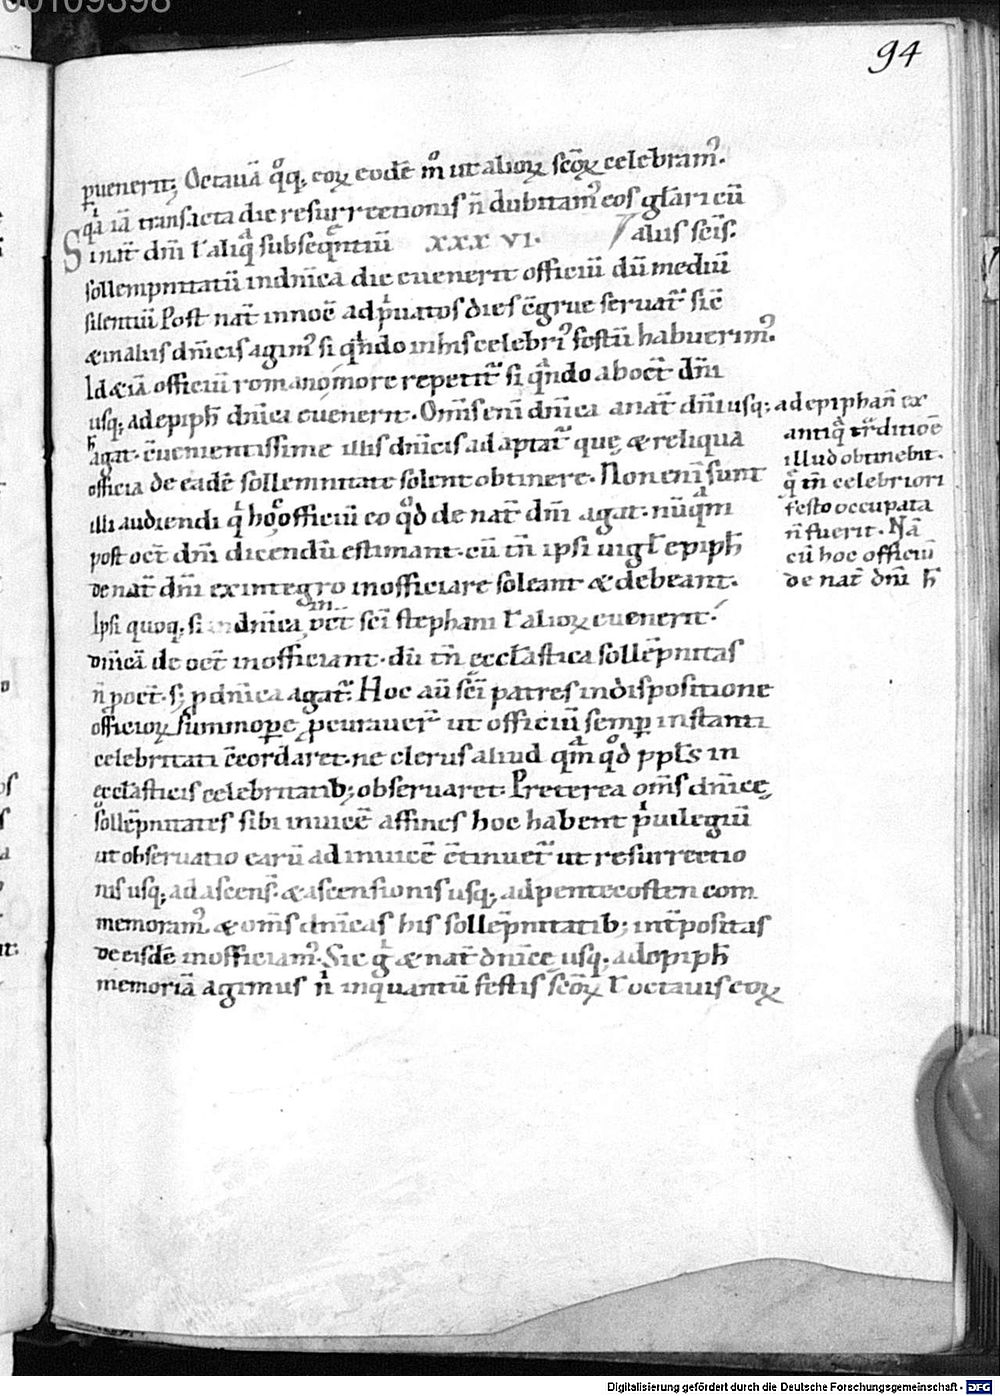 00109398
94
puenerit; Octauā q̊q; eoꝝ eodē m̊ ut alioꝝ sc̄oꝝ celebram᷒.
q̇a iā transacta die resurrectionis n̄ dubitam᷒ eos gl̄ari cū
Si nat̄ dm̄i l aliq̇ subseq̄ntiū XXXVI. alus sc̄is.
sollempnitatū in dn̄ica die euenerit officiū dū mediū
silentiū Post nat̄ innoc̄ ad ṗuatos dies c̄grue seruat᷒ sic̄
& in aliis dn̄icis agim᷒ si q̇ndo in his celebri᷒ festū habuerim᷒.
Id & iā officiū romano more repetit᷒ si q̇ndo ab oct̄ dm̄i
usq; ad epiph̄ dn̄ica euenerit. Om̄s eni dn̄ica a nat̄ dm̄i usq; ad epiphan̄ ex
antiq̇ tr̄ditioē
illud obtinebit.
q̇ tn̄ celebriori
festo occupata
n̄ fuerit. Nā
cū hoc officiū
de nat̄ dm̄i h̄
agat. c̄uenientissime illis dn̄icis adaptat᷒ quę & reliqua
officia de eadē sollemnitate solent obtinere. Non eni sunt
illi audiendi q̇ hoc officiū eo q̊d de nat̄ dm̄i agat. nūq̄m
post oct̄ dm̄i dicendū estimant. cū tn̄ ipsi uigl̄ epiph̄
de nat̄ dm̄i ex integro inofficiare soleant & debeant.
in
Ipsi quoq; si in dn̄ica oct̄ sc̄i stephani l alioꝝ euenerit.
dn̄icā de oct̄ inofficiant. dū tn̄ eccl̄astica sollēpnitas
n̄ p oct̄. s; p dn̄ica agat᷒. Hoc aū sc̄i patres in dispositione
officioꝝ summope pcurauer᷒ ut officiū semp instanti
celebritati c̄cordaret. ne clerus aliud q̄m q̊d ppl̄s in
eccl̄asticis celebritatib; obseruaret. Preterea om̄s dn̄icę
sollēpnitates sibi inuicē affines hoc habent ṗuilegiū
ut obseruatio earū ad inuicē c̄tinuet᷒ ut resurrectio
nis usq; ad ascens̄. & ascensionis usq; ad pentecosten com
memoram᷒. & om̄s dn̄icas his sollēpnitatib; int̄positas
de eisdē inofficiam᷒. Sic g̊ & nat̄ dn̄icę usq; ad epiph̄
memoriā agimus n̄ inquantū festis sc̄oꝝ l octauis eoꝝ
Digitalisierung gefördert durch die Deutsche Forschungsgemeinschaft - DFG